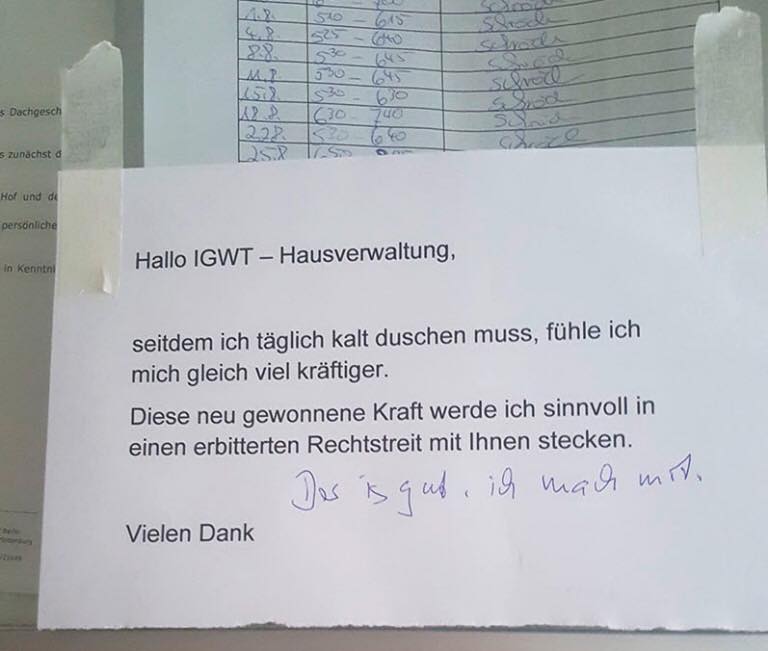 1.8. 520 - 615
4.8. 525 - 640
8.8. 530 - 645
11.8. 530 - 645
15.8. 530 - 630
18.8. 630 - 740
22.8. 530 - 640
25.8
s Dachgesch
s zunächst d
Hof und de
persönliche
in Kenntni
Hallo IGWT – Hausverwaltung,
seitdem ich täglich kalt duschen muss, fühle ich
mich gleich viel kräftiger.
Diese neu gewonnene Kraft werde ich sinnvoll in
einen erbitterten Rechtstreit mit Ihnen stecken.
Das is gut, ich mach mit.
Vielen Dank